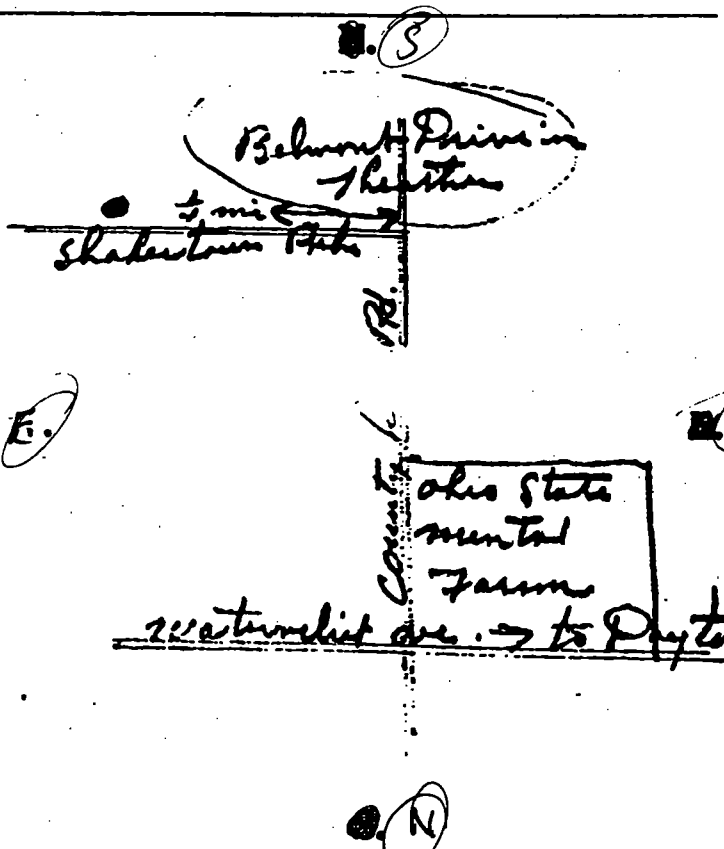 S
Belmont Drive in
Theatre
¼ mi
Shakertown Pike
Rd.
E.
County
Ohio State
mental
Farm
ave. → to Dayto
N